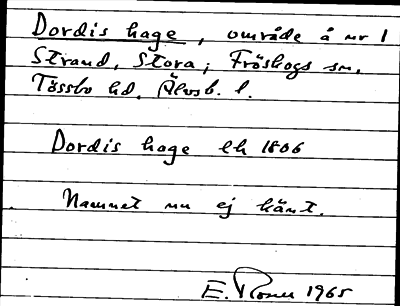 Dordis hage, område å nr 1
Strand, Stora, Fröskogs sn,
Tössbo hd, Älvsb. l.
Dordis hage lh 1806
Namnet nu ej känt.
E. Rosell 1965